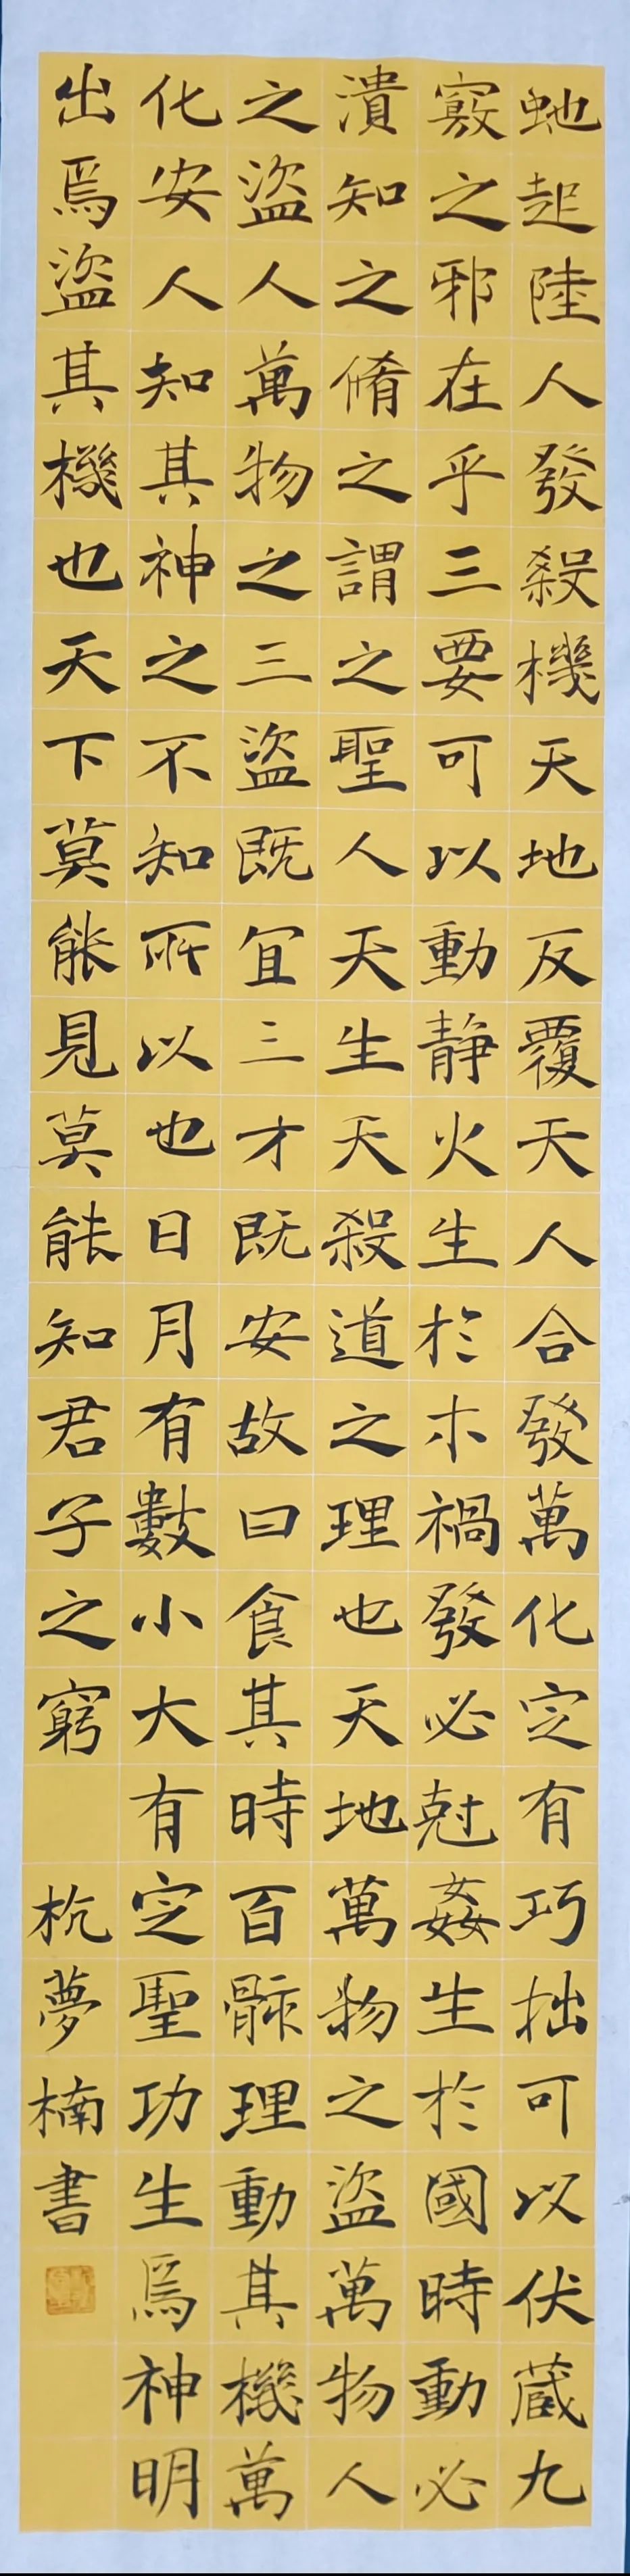 虵起陸人發殺機天地反覆天人合發萬化定有巧拙可以伏藏九
竅之邪在乎三要可以動靜火生於木禍發必尅姦生於國時動必
潰知之脩之謂之聖人天生天殺道之理也天地萬物之盜萬物人
之盜人萬物之三盜既宜三才既安故曰食其時百骸理動其機萬
化安人知其神之不知所以也日月有數小大有定聖功生焉神明
出焉盜其機也天下莫能見莫能知君子之窮
杭夢楠書